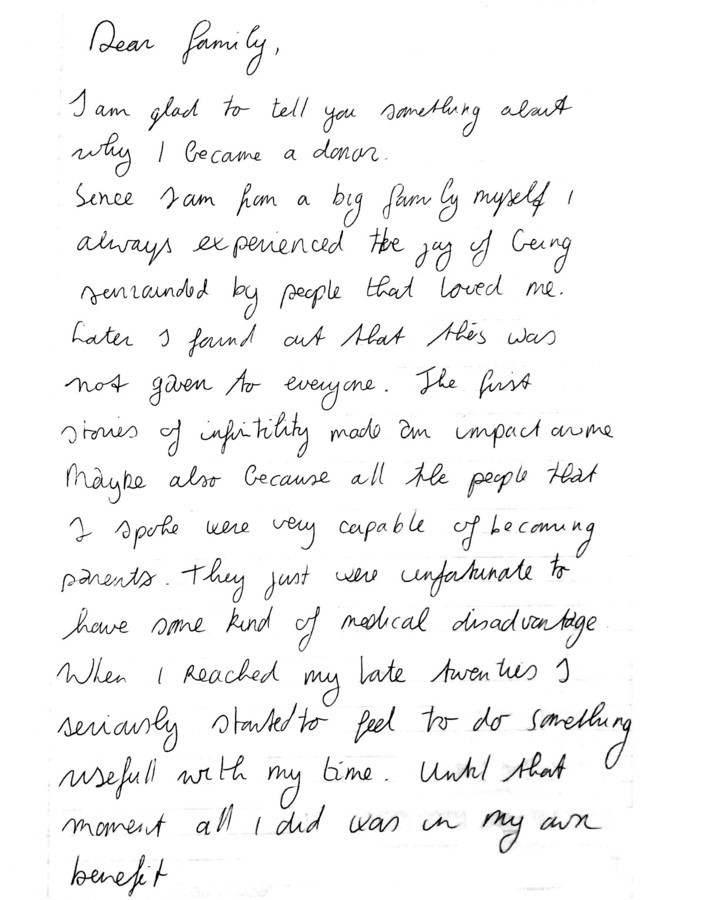 Dear family,
I am glad to tell you something about
why I became a donor.
Sence I am from a big family myself I
always experienced the joy of being
surrounded by people that loved me.
Later I found out that this was
not given to everyone. The first
stories of infirtility made an impact on me
Maybe also because all the people that
I spoke were very capable of becoming
parents. They just were unfortunate to
have some kind of medical disadvantage
When I reached my late twenties I
seriously started to feel to do something
usefull with my time. Until that
moment all I did was in my own
benefit